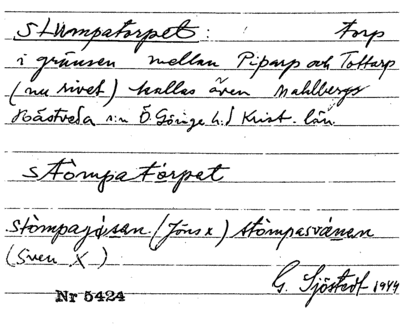 Stumpatorpet: torp
i gränsen mellan Piparp och Tottarp
(nu rivet) kallas även Mahlbergs
Hästveda s:n Ö. Göinge h.d Krist. län.
stômpatårpet
stômpajösen. (Jöns x) stômpasvänen
(Sven x)
G. Sjöstedt 1944
Nr 5424